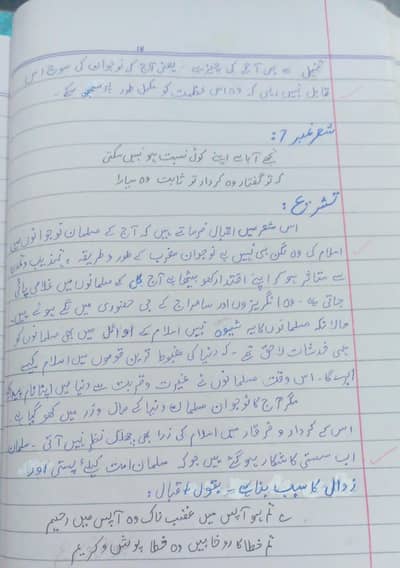 تخیل سے پس آج کی چیز ہے۔ یعنی آج کہ نوجوان کی سوچ اس
قابل نہیں رہی کہ وہ اس عظمت کو مکمل طور پر سمجھ سکے۔
شعر نمبر 7:
تجھے آبا سے اپنے کوئی نسبت ہو نہیں سکتی
کہ تو گفتار وہ کردار تو ثابت وہ سیارا
تشریح:
اس شعر میں اقبال فرماتے ہیں کہ آج کے مسلمان نوجوانوں میں
اسلام کی وہ لگن ہی نہیں ہے نوجوان مغرب کے طور و طریقہ، تہذیب و تمدن
سے متاثر ہو کر اپنے اقتدار کھو بیٹھا ہے آج کل کے مسلمانوں میں غلامی پائی
جاتی ہے۔ وہ انگریزوں اور سامراج کے جی حضوری میں لگے ہوئے ہیں
حالانکہ مسلمانوں کا یہ شیوہ نہیں اسلام کے اوائل میں بھی مسلمانوں کو
یہی خدشات لاحق تھے۔ کہ دنیا کی مضبوط ترین قوموں میں اسلام کیسے
ابھرے گا۔ اس وقت مسلمانوں نے غیرت و قربت سے دنیا میں اپنا نام
مگر آج کا نوجوان مسلمان دنیا کے مال و زر میں کھو گیا ہے
اس کے کردار و فرقار میں اسلام کی ذرا بھی جھلک نظر نہیں آتی۔ مسلمان
اب سستی کا شکار ہو گئے ہیں جو کہ مسلمان امت کیلئے پستی اور
زوال کا سبب بنا ہے۔ بقول اقبال:
ے تم ہو آپس میں غضب ناک وہ آپس میں رحیم
تم خطا کار و خطا بیں وہ خطا پوش و کریم